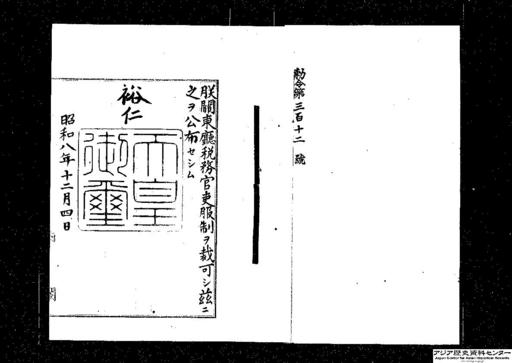 勅令第三百十二號
朕關東廳税務官吏服制ヲ裁可シ茲ニ
之ヲ公布セシム
裕仁
天皇
御璽
昭和八年十二月四日
内閣
アジア歴史資料センター
Japan Center for Asian Historical Records